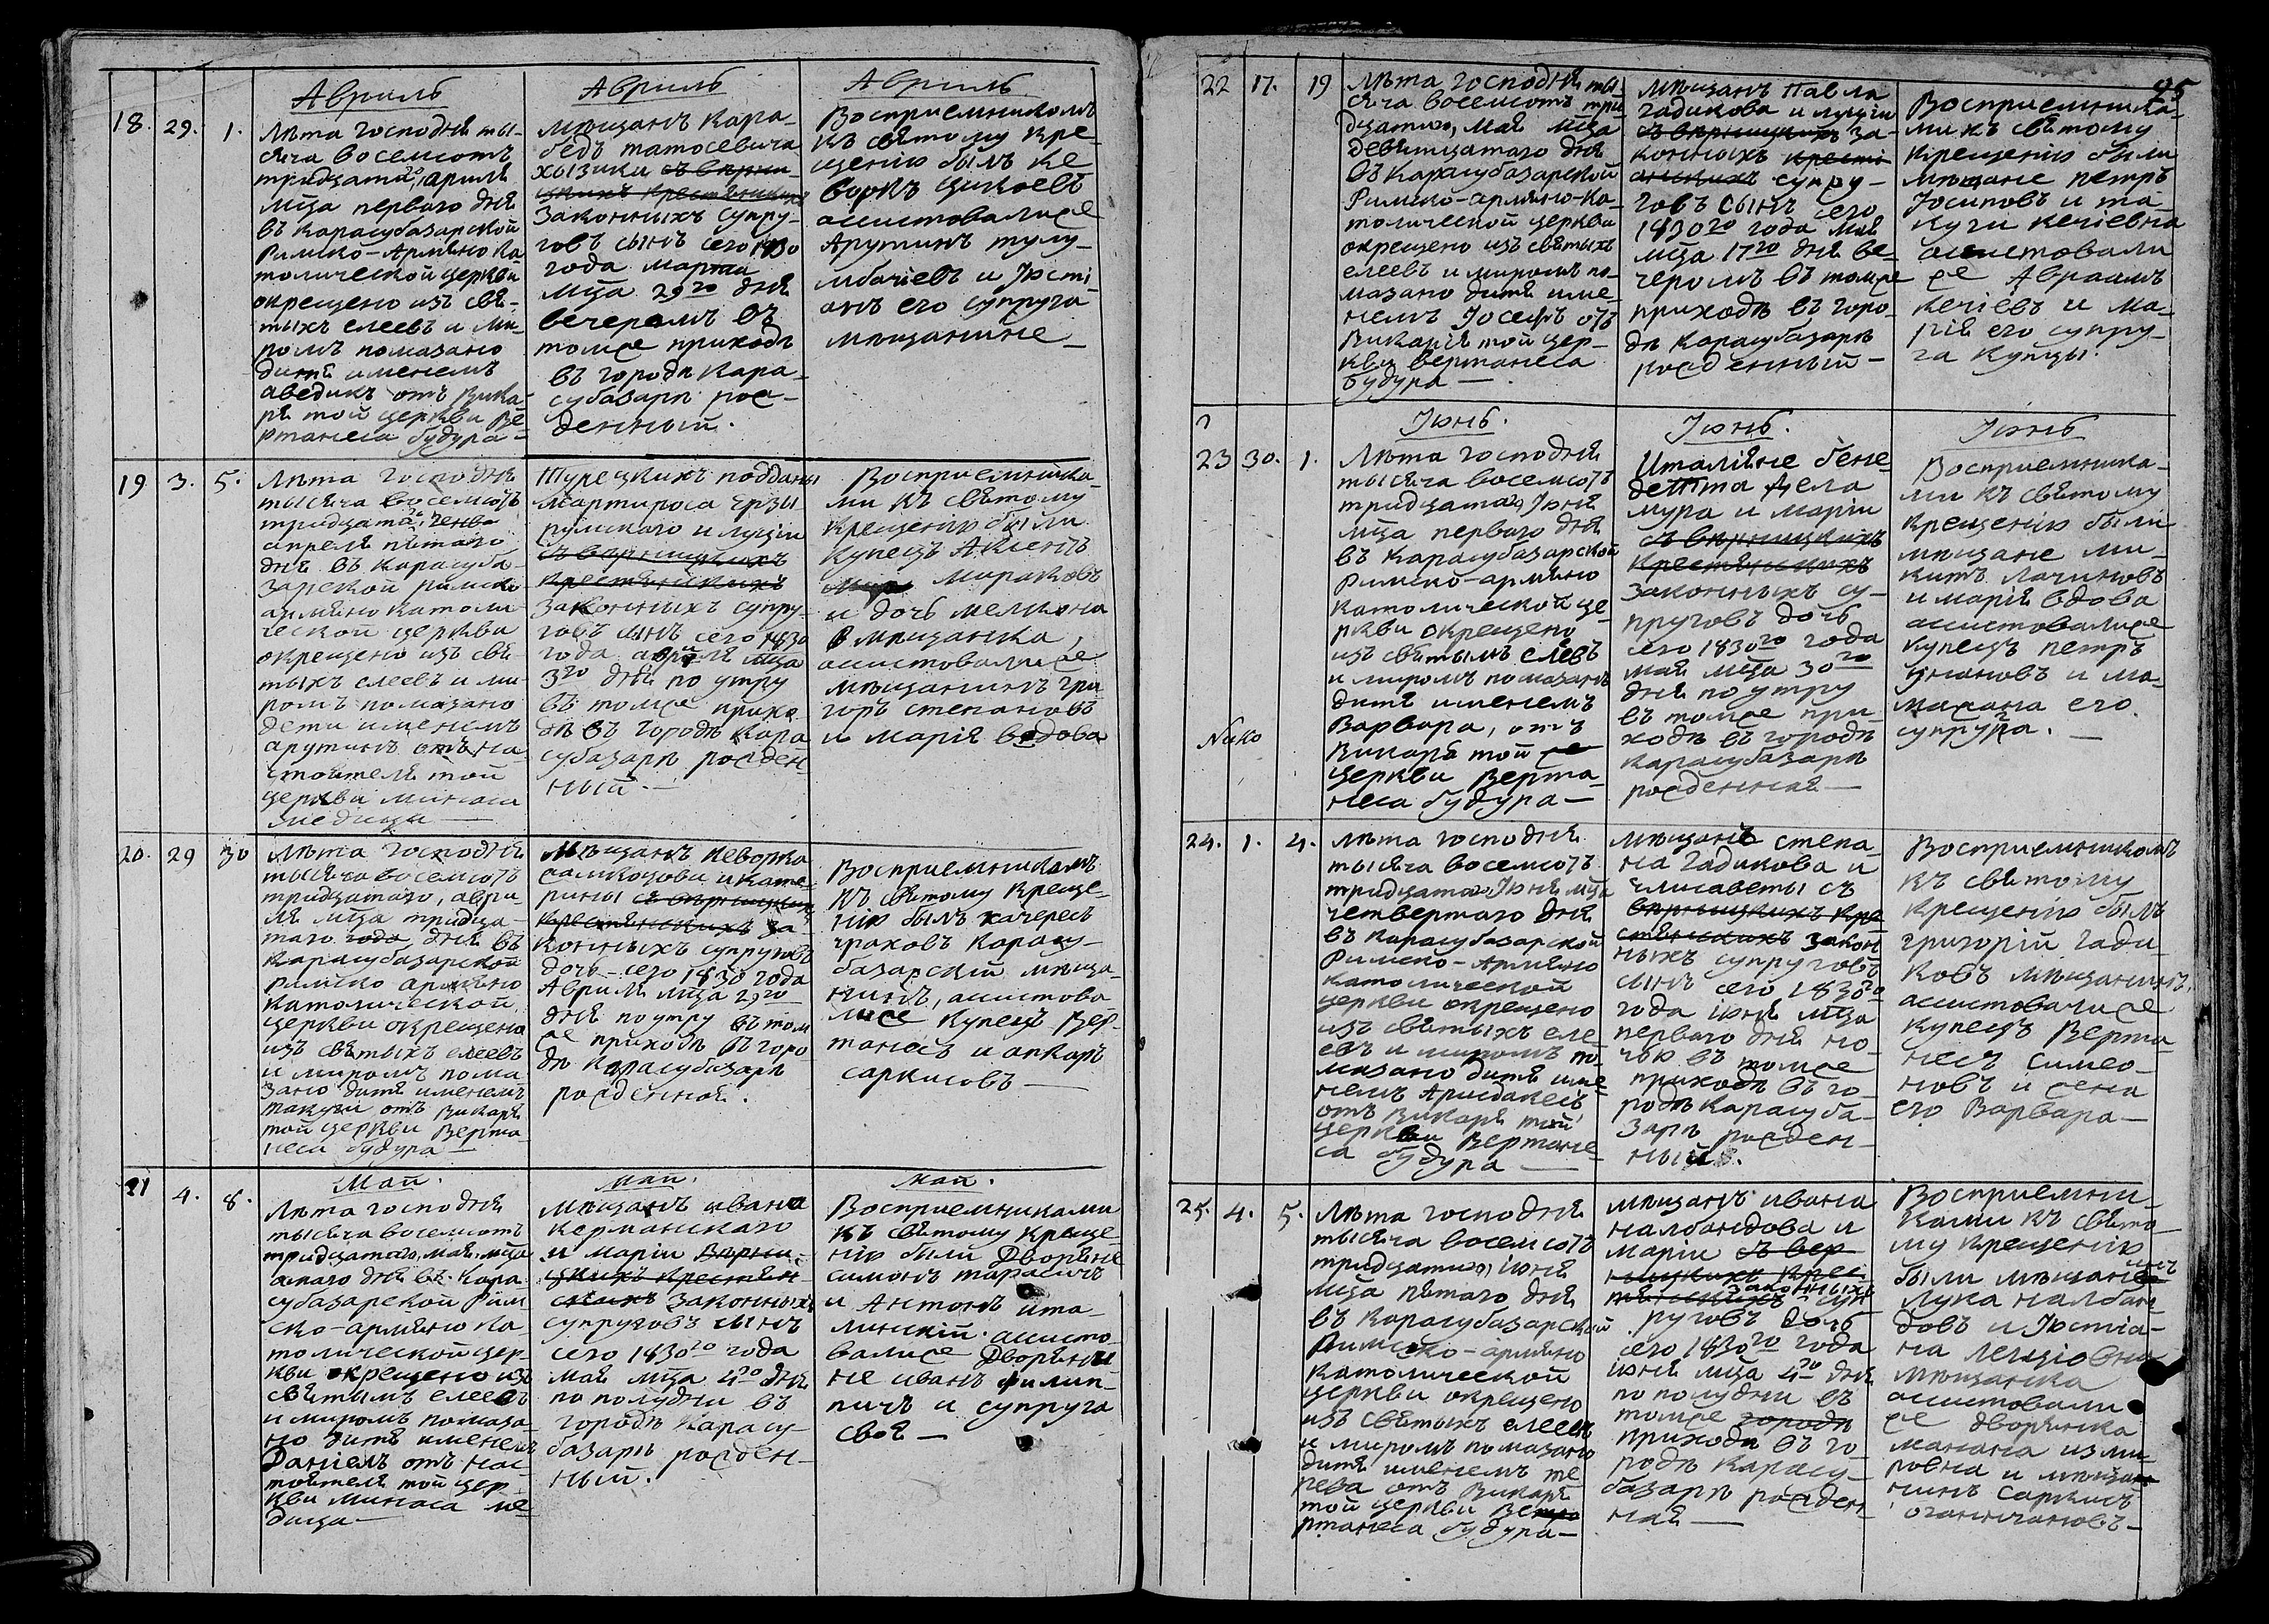 Авриль
18.
29.
1.
Лѣта господня ты-
сяча восемсотъ
тридцатаго, априля
мца перваго дня
въ Карасубазарской
Римско-Армяно ка
толической церкви
окрещено изъ свя-
тыхъ елеевъ и ми-
ромъ помазано
дитя именемъ
аведикъ отъ Вика-
ря той церкви Ве
ртанеса будура-
Авриль
мѣщанъ Кара-
бедъ татосевича
хызики
законныхъ супру-
говъ сынъ сего 1830
года марта
мца 29го дня
вечеромъ въ
томже приходѣ
въ городѣ Кара-
субазарѣ рож-
денный.
Авриль
Восприемникомъ
къ святому кре-
щенію былъ ке
воркъ
асистовалисе
Арутинъ тулу-
мбачіевъ и Юсті-
анъ его супруга
мѣщанине
19
3.
5.
Лѣта господня
тысяча восемсотъ
тридцатаго, генва
апреля пятаго
дня въ Карасуба-
зарской римско
армяно католи-
ческой церкви
окрещено изъ свя-
тыхъ елеевъ и ми-
ромъ помазано
дети именемъ
арутинъ отъ на-
стоятеля той
церкви минаса
медица
Турецкихъ подданы
мартироса ерзы
румскаго и луціи
съ вѣрницкихъ
крестянскихъ
законныхъ супру-
говъ сынъ сего 1830
года апреля мца
3го дня по утру
въ томже прихо
дѣ въ городѣ Кара
субазарѣ рожден-
ный.
Восприемника-
ми къ святому
крещенію были
купецъ
Мираковъ
и дочь мелкона
мѣщанка,
асистовалисе
мѣщанинъ гри
горъ степановъ
и марія вдова
20.
29
30
Лѣта господня
тысяча восемсотъ
тридцатаго, апри-
ля мца тридца-
таго года, дня въ
Карасубазарской
римско армяно
католической
церкви окрещено
изъ святыхъ елеевъ
и миромъ пома
зано дитя именемъ
такуги отъ Викаря
той церкви Верта
неса будура
Мѣщанъ кеворка
и кате-
рины
крестянскихъ за-
конныхъ супруговъ
дочь сего 1830 года
Авриля мца 29го
дня по утру въ том
же приходѣ въ горо
дѣ Карасубазарѣ
рожденная.
Восприемникомъ
къ святому креще-
нію былъ качересъ
граковъ Карасу-
базарскій мѣща-
нинъ, асистова
лисе купецъ Вер-
танесъ и апкаръ
саркисовъ
21
4.
8.
Май.
Лѣта господня
тысяча восемсотъ
тридцатаго, мая, мца
дня въ Кара
субазарской Рим
ско-армяно ка-
толической цер-
кви окрещено изъ
святымъ елеевъ
и миромъ помаза-
но дитя именемъ
Даніелъ отъ нас
тоятеля той цер-
кви минаса ме
дица
май.
мѣщанъ ивана
керманскаго
и маріи Вѣрни-
цкихъ крестян-
скихъ законныхъ
супруговъ сынъ
сего 1830го года
мая мца 4го дня
по полудни въ
городѣ Карасу-
базарѣ рожден-
ный.
май.
Восприемниками
къ святому креще
нію были Дворяне
симонъ тарасичъ
и Антонъ ита-
линскій. асисто-
валисе Дворяни
не иванъ филип-
пичъ и супруга
своя
95
22
17.
19
Лѣта господня ты-
сяча восемсотъ три-
дцатаго, мая мца
девятцатаго дня
въ Карасубазарской
Римско-армяно-ка-
толической церкви
окрещено изъ святыхъ
елеевъ и миромъ по-
мазано дитя име-
немъ Іосефъ отъ
Викарія той цер-
кви вертанеса
будура
мѣщанъ Павла
гадикова и луціи
съ вѣрницкихъ за-
конныхъ крестя-
анскихъ супру-
говъ сынъ сего
1830го года мая
мца 17го дня ве-
черомъ въ томже
приходѣ въ горо-
дѣ Карасубазарѣ
рожденный
Восприемника-
ми къ святому
крещенію были
мѣщане петръ
Іосиповъ и та-
куги кечіевна
асистовали
се Авраамъ
кечіевъ и ма-
рія его супру-
га купцы.
23
30.
1.
Нико
Іюнь.
Лѣта господня
тысяча восемсотъ
тридцатаго, Іюня
мца перваго дня
въ Карасубазарской
Римско-армяно
католической це-
ркви окрещено
изъ святымъ елевъ
и миромъ помазанъ
дитя именемъ
Варвара, отъ
Викаря той же
церкви Верта-
неса будура
Іюнь.
Италіяне бене-
детта Дела
мура и маріи
съ вѣрницкихъ
крестянскихъ
законныхъ су-
пруговъ дочь
сего 1830го года
мая мца 30го
дня по утру
въ томже при-
ходѣ въ городѣ
Карасубазарѣ
рожденная
Іюнь
Восприемника-
ми къ святому
крещенію были
мѣщане ми-
китъ лачиновъ
и марія вдова
асистовалисе
купецъ петръ
унановъ и ма-
марана его
супруга.
24.
1.
4.
Лѣта господня
тысяча восемсотъ
тридцатаго Іюня мца
четвертаго дня
въ Карасубазарской
Римско-Армяно
католической
церкви окрещено
изъ святыхъ еле
евъ и миромъ по-
мазано дитя име
немъ Аристакесъ
отъ Викаря той
церкви Вертане
са будура
мѣщанъ степа-
на гадикова и
елисаветы съ
вѣрницкихъ кре
стянскихъ закон
ныхъ супруговъ
сынъ сего 1830го
года июня мца
перваго дня но-
чью въ томже
приходѣ въ го-
родѣ Карасуба-
зарѣ рожден-
ный.
Восприемникомъ
къ святому
крещенію былъ
григорій гади
ковъ мѣщанинъ.
асистовалисе
купецъ Верта-
несъ симео-
новъ и жена
его Варвара
25.
4.
5.
Лѣта господня
тысяча восемсотъ
тридцатаго, июня
мца пятаго дня
въ Карасубазарской
Римско-армяно
католической
церкви окрещено
изъ святыхъ елеевъ
и миромъ помазано
дитя именемъ те
реза отъ Викаря
той церкви Ве
ртанеса будура
мѣщанъ ивана
налбандова и
маріи съ вер-
ницкихъ крес
тянскихъ законныхъ суп
руговъ дочь
сего 1830го года
июня мца 4го дня
по полудни въ
томже городѣ
приходѣ въ го-
родѣ Карасу-
базарѣ рожден
ная
Восприемни-
ками къ свято-
му крещенію
были мѣщанинъ
лука налбан
довъ и Юстіа-
на
мѣщанка
асистовали
се дворянка
манана изми-
ровна и мѣщан
нинъ саркисъ
оганжановъ